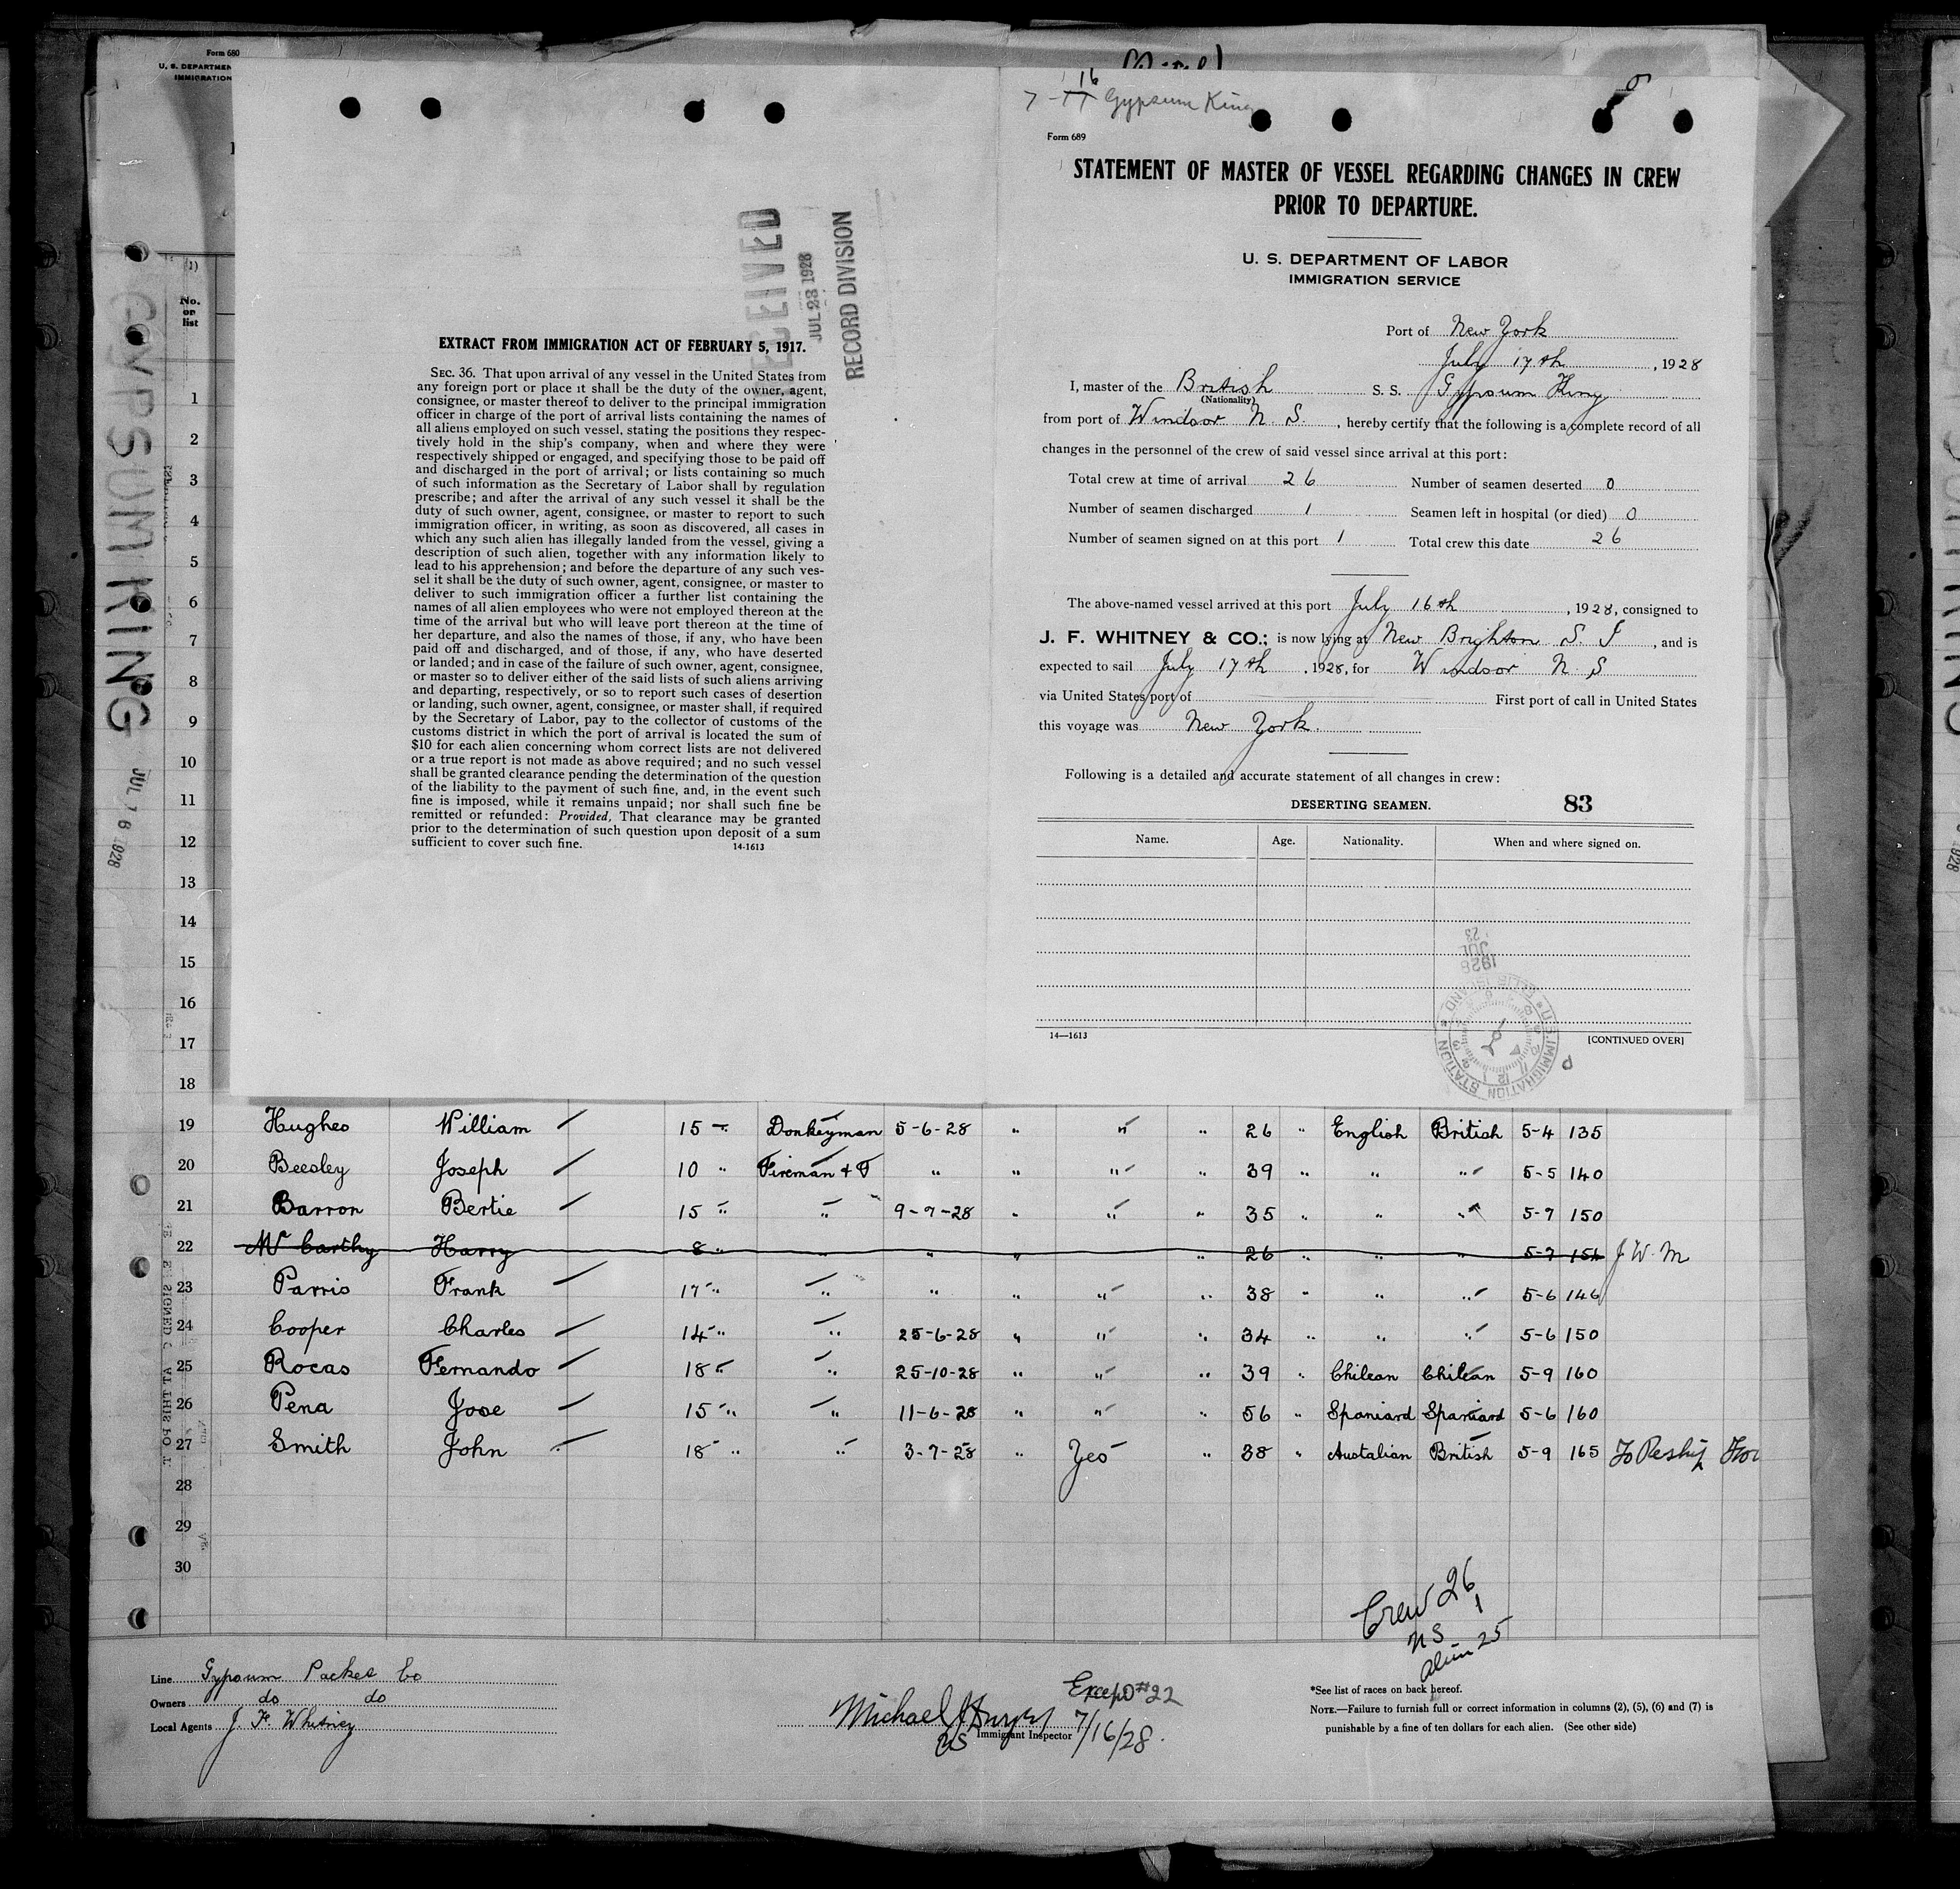 Form 680
U. S. DEPARTMEN
IMMIGRATION
No.
on
list
GYPSUM KING
JUL 16 1928
RECEIVED
JUL 23 1928
RECORD DIVISION
EXTRACT FROM IMMIGRATION ACT OF FEBRUARY 5, 1917.
SEC. 36. That upon arrival of any vessel in the United States from
any foreign port or place it shall be the duty of the owner, agent,
consignee, or master thereof to deliver to the principal immigration
officer in charge of the port of arrival lists containing the names of
all aliens employed on such vessel, stating the positions they respec-
tively hold in the ship's company, when and where they were
respectively shipped or engaged, and specifying those to be paid off
and discharged in the port of arrival; or lists containing so much
of such information as the Secretary of Labor shall by regulation
prescribe; and after the arrival of any such vessel it shall be the
duty of such owner, agent, consignee, or master to report to such
immigration officer, in writing, as soon as discovered, all cases in
which any such alien has illegally landed from the vessel, giving a
description of such alien, together with any information likely to
lead to his apprehension; and before the departure of any such ves-
sel it shall be the duty of such owner, agent, consignee, or master to
deliver to such immigration officer a further list containing the
names of all alien employees who were not employed thereon at the
time of the arrival but who will leave port thereon at the time of
her departure, and also the names of those, if any, who have been
paid off and discharged, and of those, if any, who have deserted
or landed; and in case of the failure of such owner, agent, consignee,
or master so to deliver either of the said lists of such aliens arriving
and departing, respectively, or so to report such cases of desertion
or landing, such owner, agent, consignee, or master shall, if required
by the Secretary of Labor, pay to the collector of customs of the
customs district in which the port of arrival is located the sum of
$10 for each alien concerning whom correct lists are not delivered
or a true report is not made as above required; and no such vessel
shall be granted clearance pending the determination of the question
of the liability to the payment of such fine, and, in the event such
fine is imposed, while it remains unpaid; nor shall such fine be
remitted or refunded: Provided, That clearance may be granted
prior to the determination of such question upon deposit of a sum
sufficient to cover such fine.
14-1613
16
Gypsum King
Form 689
STATEMENT OF MASTER OF VESSEL REGARDING CHANGES IN CREW
PRIOR TO DEPARTURE.
U. S. DEPARTMENT OF LABOR
IMMIGRATION SERVICE
Port of New York
July 17th, 1928
I, master of the British S. S. Gypsum King
(Nationality)
from port of Windsor N. S., hereby certify that the following is a complete record of all
changes in the personnel of the crew of said vessel since arrival at this port:
Total crew at time of arrival 26 Number of seamen deserted 0
Number of seamen discharged 1 Seamen left in hospital (or died) 0
Number of seamen signed on at this port 1 Total crew this date 26
The above-named vessel arrived at this port July 16th, 1928, consigned to
J. F. WHITNEY & CO.; is now lying at New Brighton S. I, and is
expected to sail July 17th, 1928, for Windsor N S
via United States port of First port of call in United States
this voyage was New York.
Following is a detailed and accurate statement of all changes in crew:
DESERTING SEAMEN. 83
Name. Age. Nationality. When and where signed on.
1928
JUL
23
U.S. IMMIGRATION STATION ELLIS ISLAND
14—1613 [CONTINUED OVER]
1
2
3
4
5
6
7
8
9
10
11
12
13
14
15
16
17
18
19 Hughes William 15 " Donkeyman 5-6-28 " " " 26 " English British 5-4 135
20 Beesley Joseph 10 " Fireman & T " " " " 39 " " " 5-5 140
21 Barron Bertie 15 " " 9-7-28 " " " 35 " " " 5-7 150
22 McCarthy Harry 8 " " " " " 26 " " " 5-7 154 J W. M
23 Parris Frank 17 " " " " " " 38 " " " 5-6 146
24 Cooper Charles 14 " " 25-6-28 " " " 34 " " " 5-6 150
25 Rocas Fernando 18 " " 25-10-28 " " " 39 " Chilean Chilean 5-9 160
26 Pena Jose 15 " " 11-6-28 " " " 56 " Spaniard Spaniard 5-6 160
27 Smith John 18 " " 3-7-28 " Yes " 38 " Austalian British 5-9 165 To Reship
28
29
30
Crew 26
1
NS
Alien 25
Line Gypsum Packet Co
Owners do do
Local Agents J. F. Whitney
Except #22
Michael
Immigrant Inspector 7/16/28.
*See list of races on back hereof.
NOTE.—Failure to furnish full or correct information in columns (2), (5), (6) and (7) is
punishable by a fine of ten dollars for each alien. (See other side)